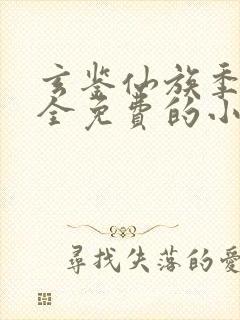 玄鉴仙族季
全免费的小
尋找失落的愛